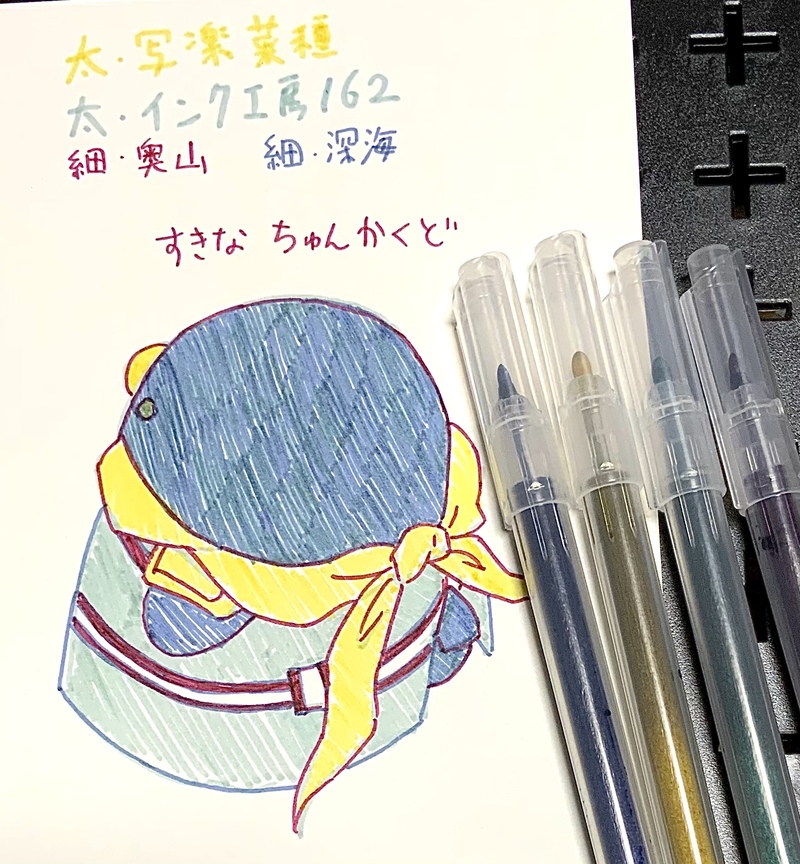 太・写楽菜種
太・インク工房162
細・奥山 細・深海
すきな ちゅんかくど